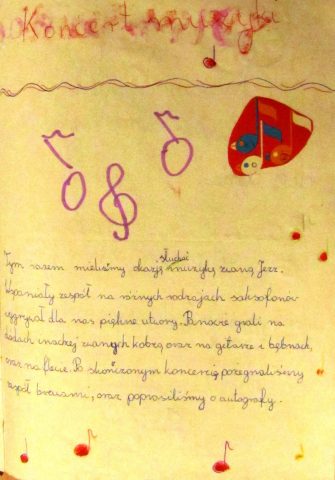 Koncert muzyki
Tym razem mieliśmy okazję słuchać muzykę zwaną Jezz.
Wspaniały zespół na różnych rodzajach saksofonów
wygrywał dla nas piękne utwory. Panowie grali na
dudach inaczej zwanych kobzą oraz na gitarze i bębnach,
oraz na flecie. Po skończonym koncercie pożegnaliśmy
zespół brawami, oraz poprosiliśmy o autografy.